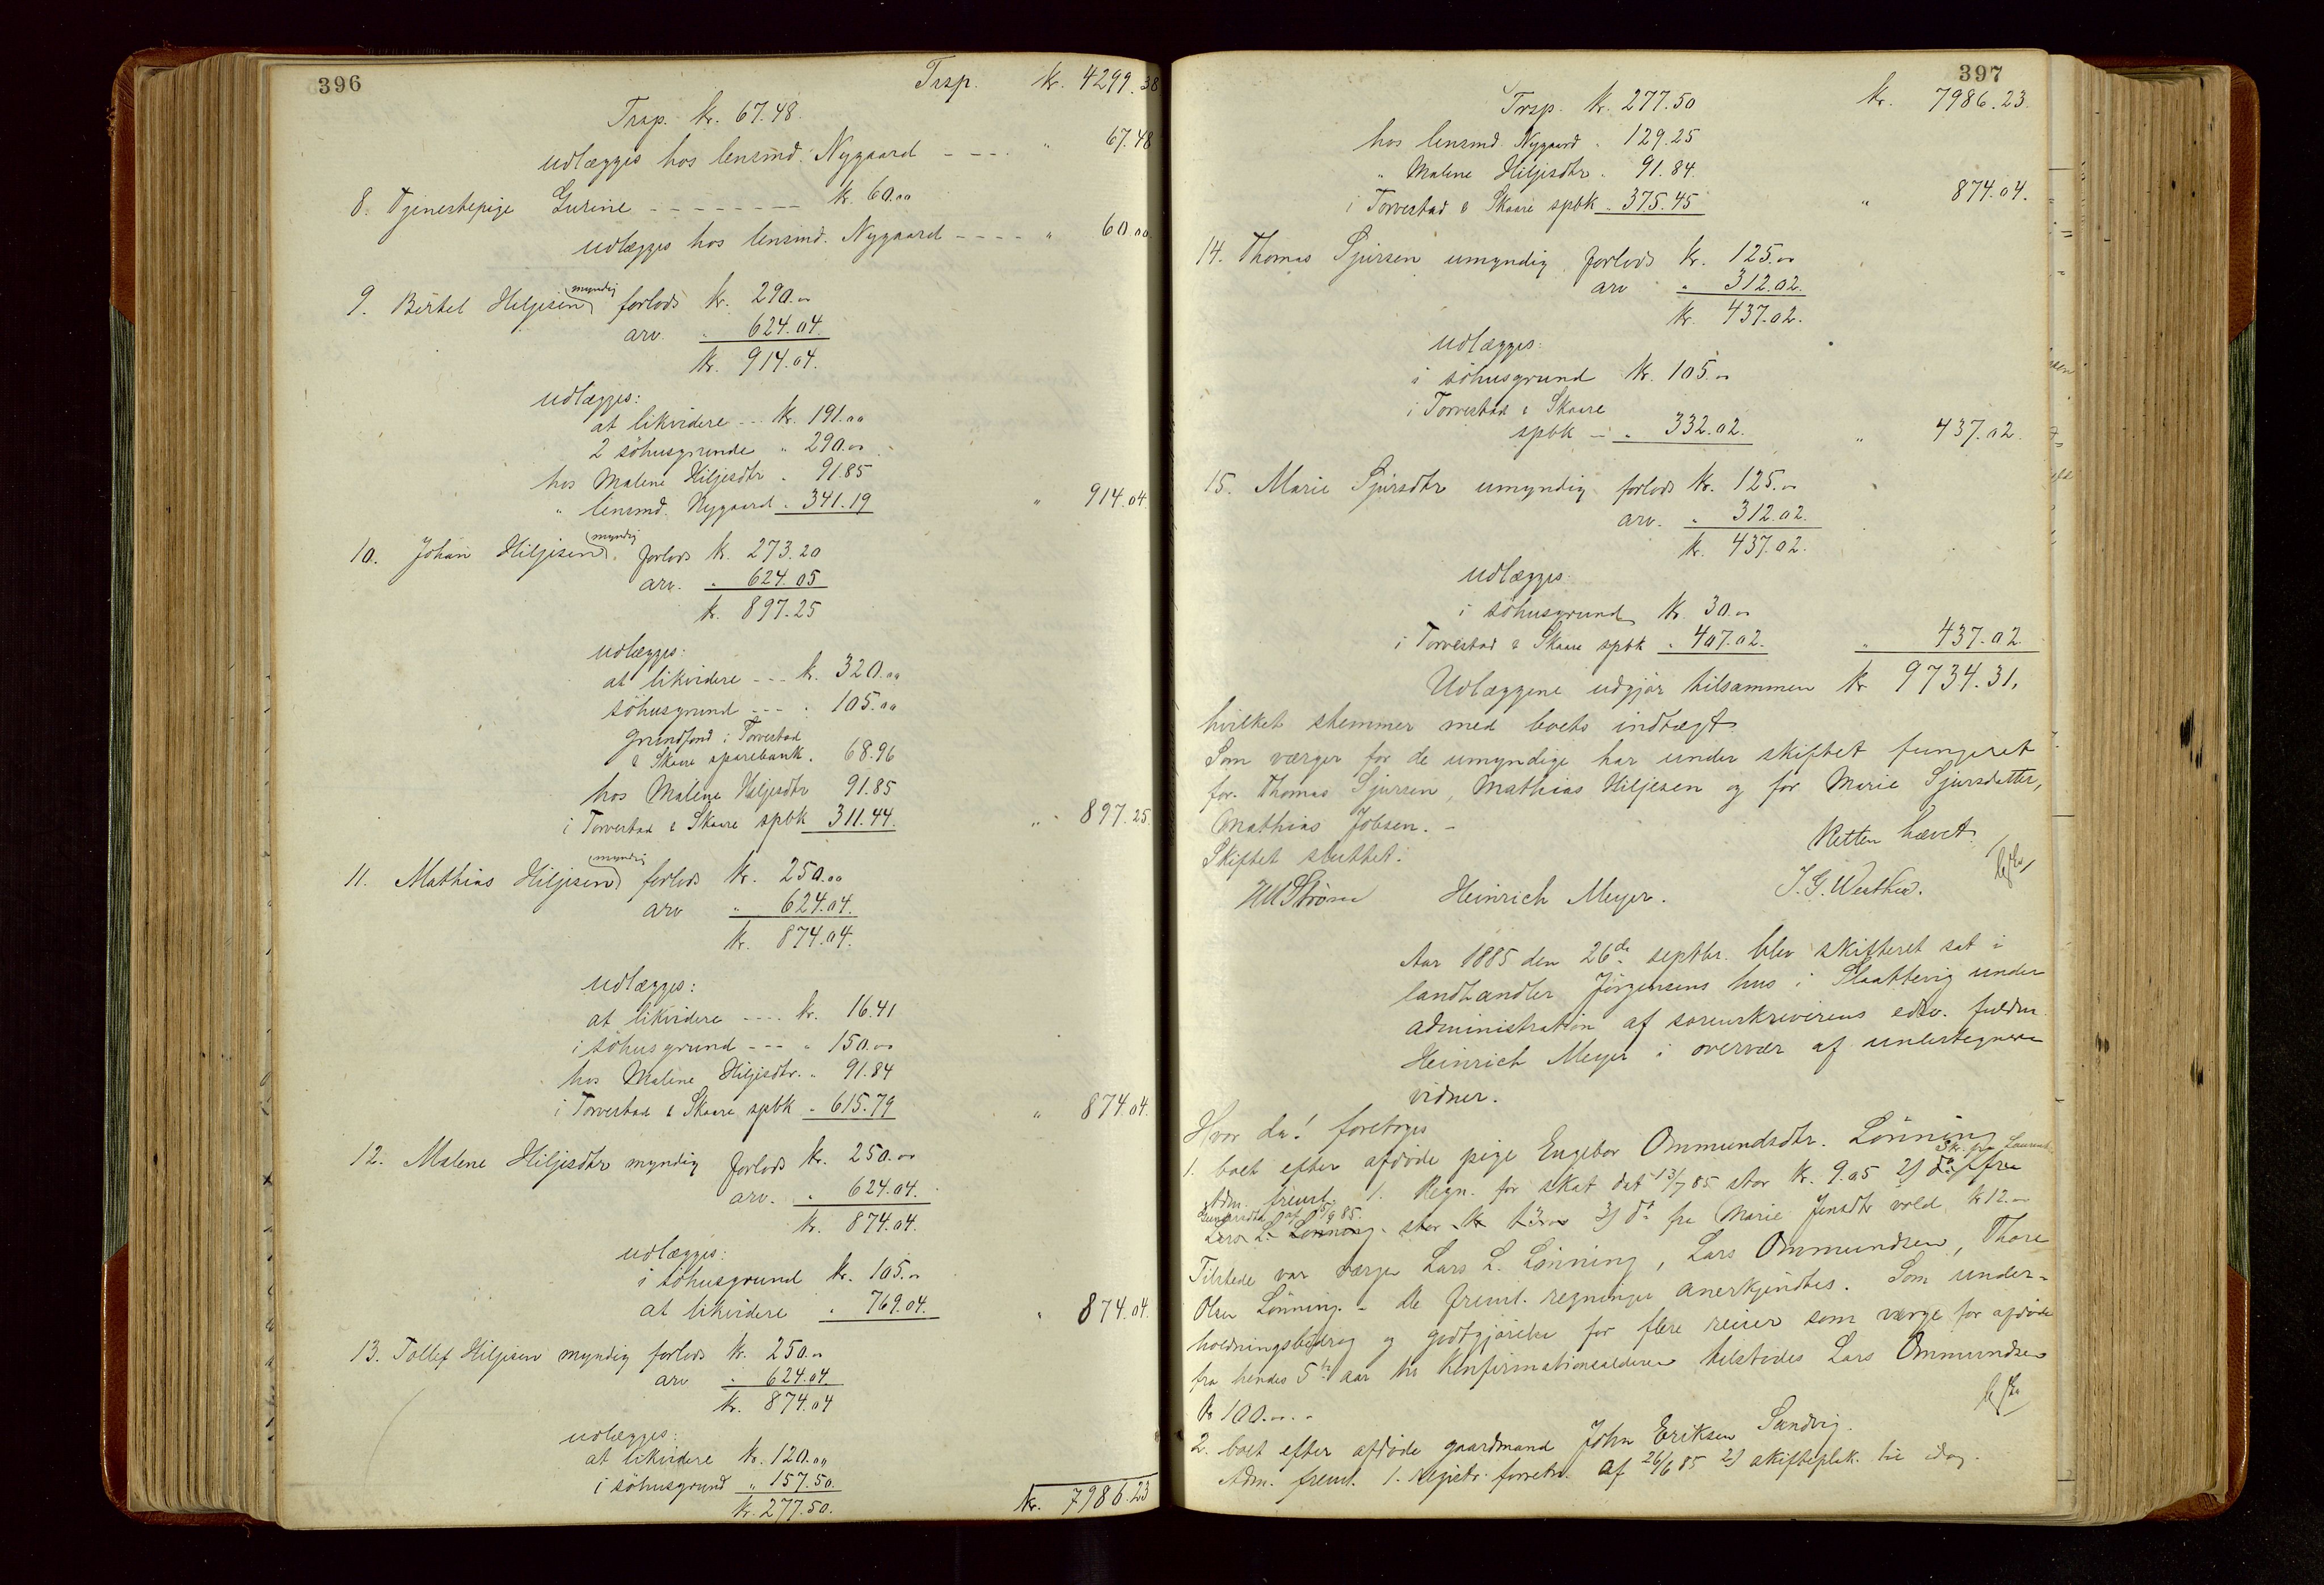 396
Trsp. kr. 4299.38
Trsp. kr. 67.48
udlægges hos lensmd. Nygaard - - - - " 67.48
8. Tjenestepige Gurine - - - - - - - - kr. 60.00
udlægges hos lensmd. Nygaard - - - - " 60.00
9. Bertel Hiljesen (myndig) forlods kr. 290.00
arv. " 624.04.
kr. 914.04.
udlægges:
at likvidere - - - kr. 191.00
2 söhusgrunde " 290.00
hos Malene Hiljesdtr " 91.85
" lensmd. Nygaard " 341.19 " 914.04
10. Johan Hiljesen (myndig) forlods kr. 273.20
arv. " 624.05
kr. 897.25
udlægges:
at likvidere - - - kr. 320.00
söhusgrund - - - " 105.00
grundfond i Torvestad
& Skaare sparebank " 68.96
hos Malene Hiljesdtr 91.85
i Torvestad & Skaare spbk 311.44. " 897.25.
11. Mathias Hiljesen (myndig) forlods kr. 250.00
arv " 624.04.
kr. 874.04.
udlægges:
at likvidere - - - - kr. 16.41
i söhusgrund - - - " 150.00
hos Malene Hiljesdtr. " 91.84
i Torvestad & Skaare spbk " 615.79 " 874.04.
12. Malene Hiljesdtr myndig forlods kr. 250.00
arv. " 624.04.
kr. 874.04.
udlægges:
i söhusgrund kr. 105.00
at likvidere " 769.04. " 874.04.
13. Tollef Hiljesen myndig forlods kr. 250.00
arv " 624.04.
kr. 874.04
udlægges:
at likvidere kr. 120.00
i söhusgrund " 157.50.
kr. 277.50. kr. 7986.23
397
Trsp. kr. 277.50 kr. 7986.23.
hos lensmd Nygaard " 129.25
" Malene Hiljesdtr. " 91.84.
i Torvestad & Skaare spbk " 375.45 " 874.04.
14. Thomas Sjursen umyndig forlods kr. 125.00
arv " 312.02.
kr. 437.02.
udlægges:
i söhusgrund kr. 105.00
i Torvestad & Skaare
spbk - " 332.02. " 437.02.
15. Marie Sjursdtr umyndig forlods kr. 125.00
arv. " 312.02.
kr. 437.02.
udlægges:
i söhusgrund kr. 30.00
i Torvestad & Skaare spbk " 407.02. " 437.02
Udlæggene udgjør tilsammen kr 9734.31,
hvilket stemmer med boets indtægt.
Som værger for de umyndige har under skiftet fungeret
for Thomas Sjursen, Mathias Hiljesen og for Marie Sjursdatter,
Mathias Jobsen. -
Skiftet sluttet. Retten hævet.
Heinrich Meyer.
Aar 1885 den 26de septbr. blev skifteret sat i
landhandler Jörgensens hus i Slaattevig under
administration af sorenskriverens edsv. fuldm.
Heinrich Meyer i overvær af undertegnede
vidner.
Hvor da! foretoges
1. boet efter afdøde pige Engebor Ommundsdtr. Lönning
Adm. freml. 1. Regn. for skat dat 13/7 85 stor kr. 9.05 2) do fra
Lars L. Lönning stor kr 3) do fra Marie Jensdtr vold kr 12.00
Tilstede var værge Lars L. Lönning, Lars Ommundsen, Thore
Olsen Lönning. - De freml. regninger anerkjendtes. Som under-
holdningsbidrag og godtgjørelse for flere reiser som værge for afdøde
fra hendes 5te aar til konfirmationsalderen tilstodes Lars Ommundsen
kr 100.00. -
2. boet efter afdøde gaardmand John Eriksen Sandvig.
Adm. freml. 1. registr. forretn. af 26/6 85 2) skifteplak. til idag.